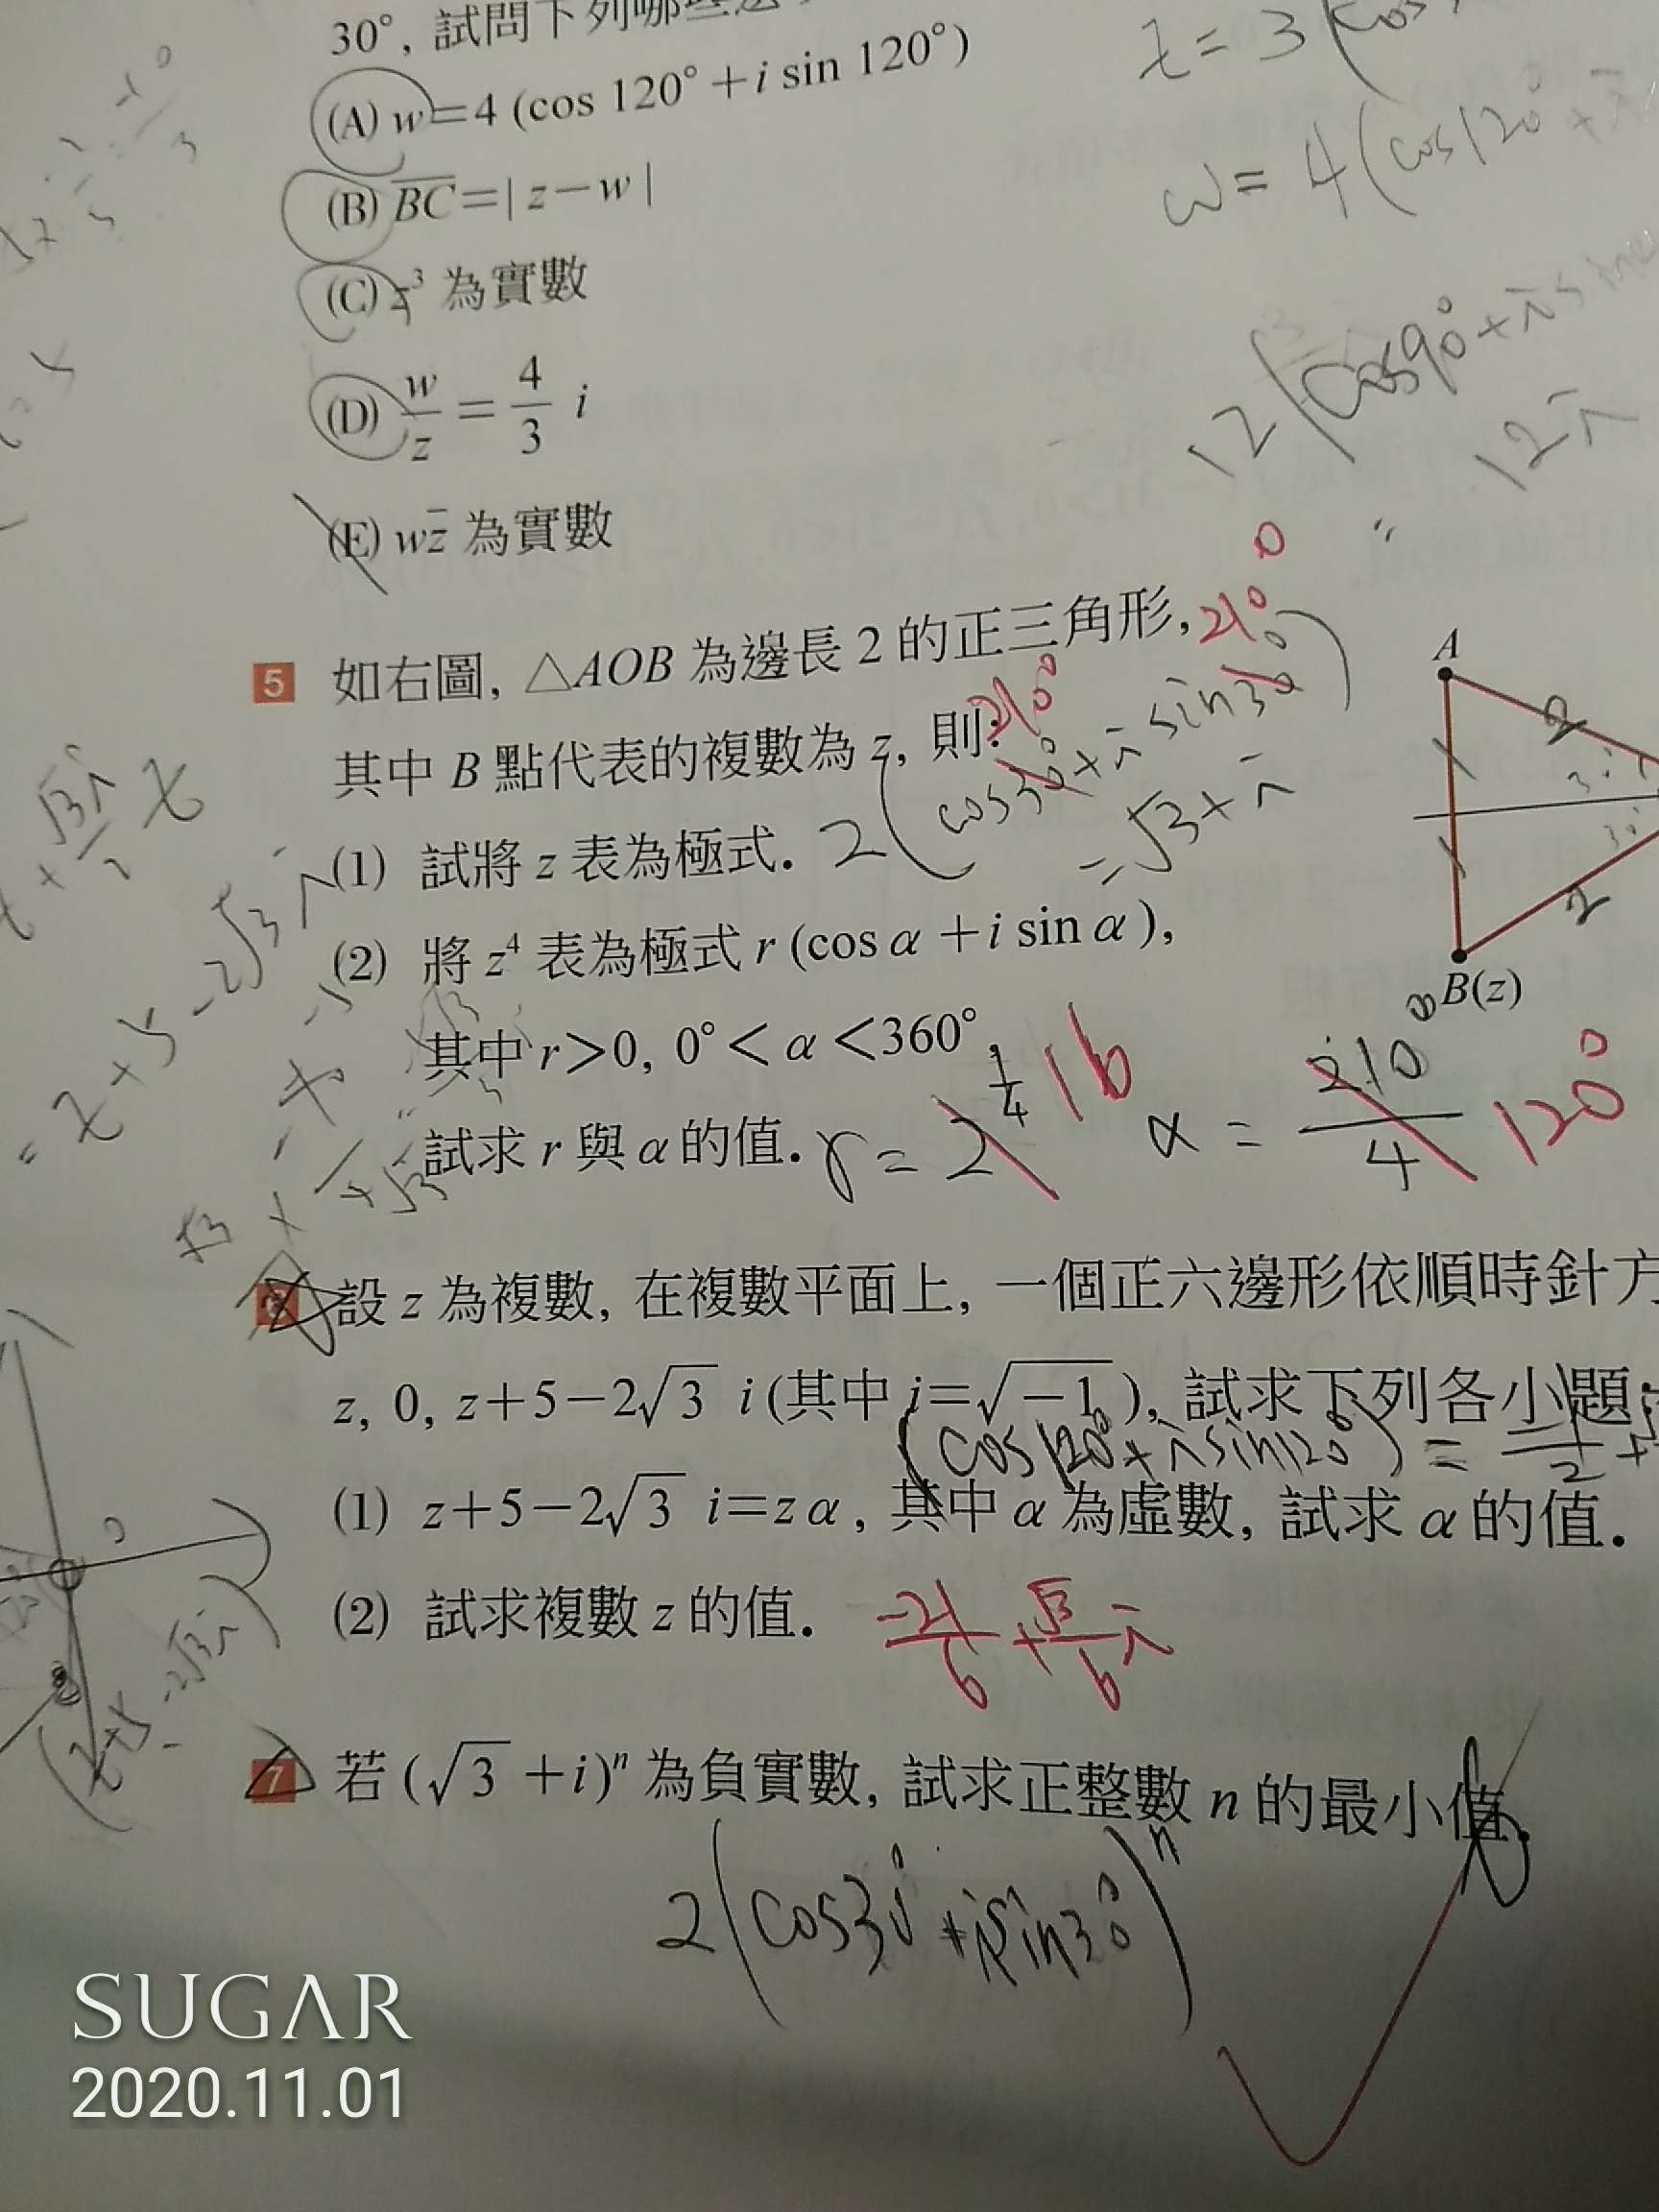 30°, 試問下列哪些
(A) w=4 (cos 120°+i sin 120°)
(B) \overline{BC}=|z-w|
(C) z³ 為實數
(D) w/z = 4/3 i
(E) w\bar{z} 為實數
z = 3 (cos
w = 4 (cos120° + i
12 (cos90° + i sin
12i
5 如右圖, △AOB 為邊長 2 的正三角形,
210°
其中 B 點代表的複數為 z, 則:
210°
(1) 試將 z 表為極式. 2 (cos30° + i sin30°)
= √3 + i
(2) 將 z⁴ 表為極式 r (cos α + i sin α),
其中 r>0, 0°<α<360°,
試求 r 與 α 的值. r = 2^{1/4} 16 α = 210°/4 120°
A
2
2
B(z)
6 設 z 為複數, 在複數平面上, 一個正六邊形依順時針方
z, 0, z+5-2√3 i (其中 i=√-1), 試求下列各小題:
(cos120° + i sin120°) = -1/2 +
(1) z+5-2√3 i=zα, 其中 α 為虛數, 試求 α 的值.
(2) 試求複數 z 的值. -21/6 + √3/6 i
(z+5-2√3i)
7 若 (√3+i)ⁿ 為負實數, 試求正整數 n 的最小值.
6
2 (cos30° + i sin30°)ⁿ
SUGAR
2020.11.01